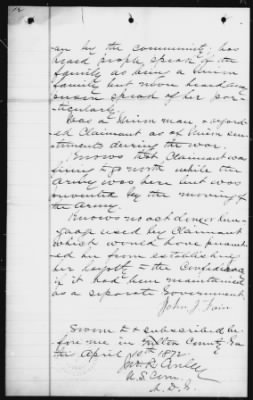 an by the community; has
heard people speak of the
family as being a Union
family but never heard any
person speak of her par-
ticularly.
Was a Union man & regard-
ed Claimant as of Union sen-
timents during the war.
Knows that Claimant was
trying to go north while the
Army was here but was
prevented by the moving of
the Army.
Knows no act done or lan-
guage used by Claimant
which would have prevent-
ed her from establishing
her loyalty to the Confederacy
if it had been maintained
as a separate Government.
John J Fain
Sworn to & subscribed be-
fore me in Fulton County Ga
the April 10th 1872
U.S. Com